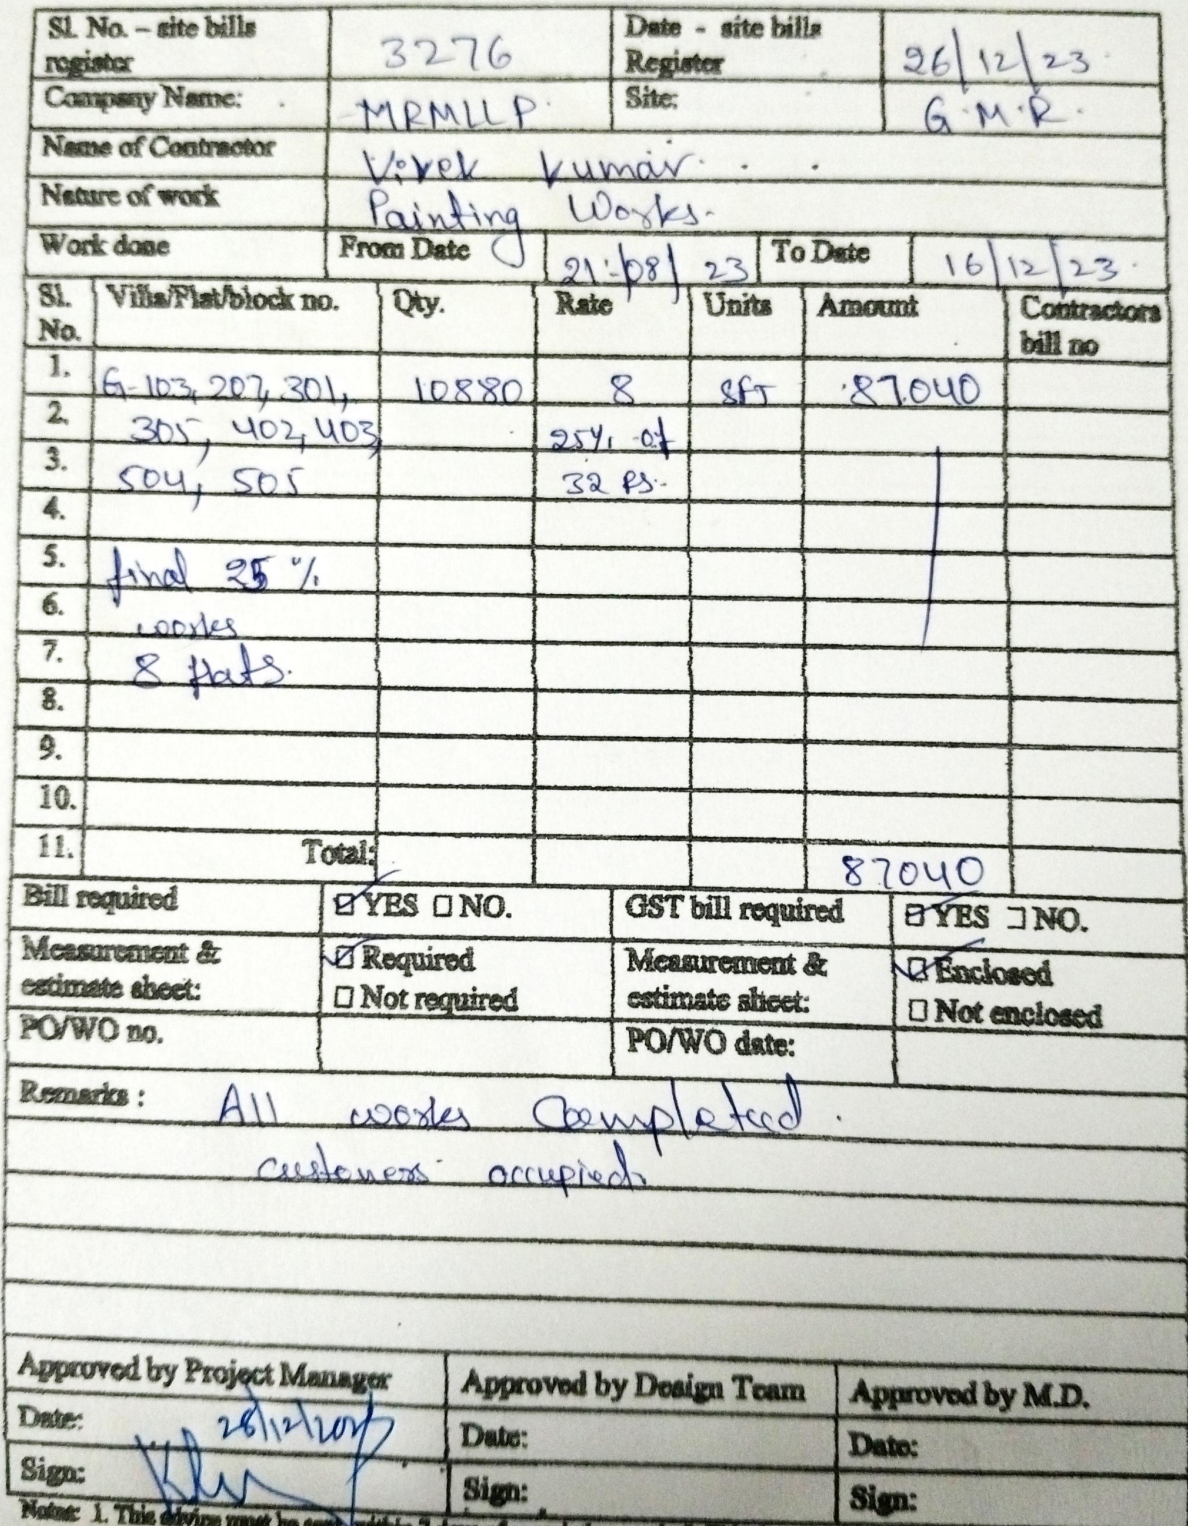 Sl. No. – site bills register 3276 Date - site bills Register 26/12/23
Company Name: MRMLLP. Site: G.M.R.
Name of Contractor Vivek Kumar.
Nature of work Painting Works.
Work done From Date 21/08/23 To Date 16/12/23.
Sl. No. Villa/Flat/block no. Qty. Rate Units Amount Contractors bill no
1. G-103, 207, 301, 10880 8 SFT 87040
2. 305, 402, 403, 25% of
3. 504, 505 32 PS.
4.
5. final 25 %
6. works
7. 8 flats.
8.
9.
10.
11. Total: 87040
Bill required YES NO. GST bill required YES NO.
Measurement & estimate sheet: Required Measurement & estimate sheet: Enclosed
Not required Not enclosed
PO/WO no. PO/WO date:
Remarks : All works Completed.
customers occupied.
Approved by Project Manager Approved by Design Team Approved by M.D.
Date: Date: Date:
Sign: Sign: Sign:
Notes: 1. This advice must be